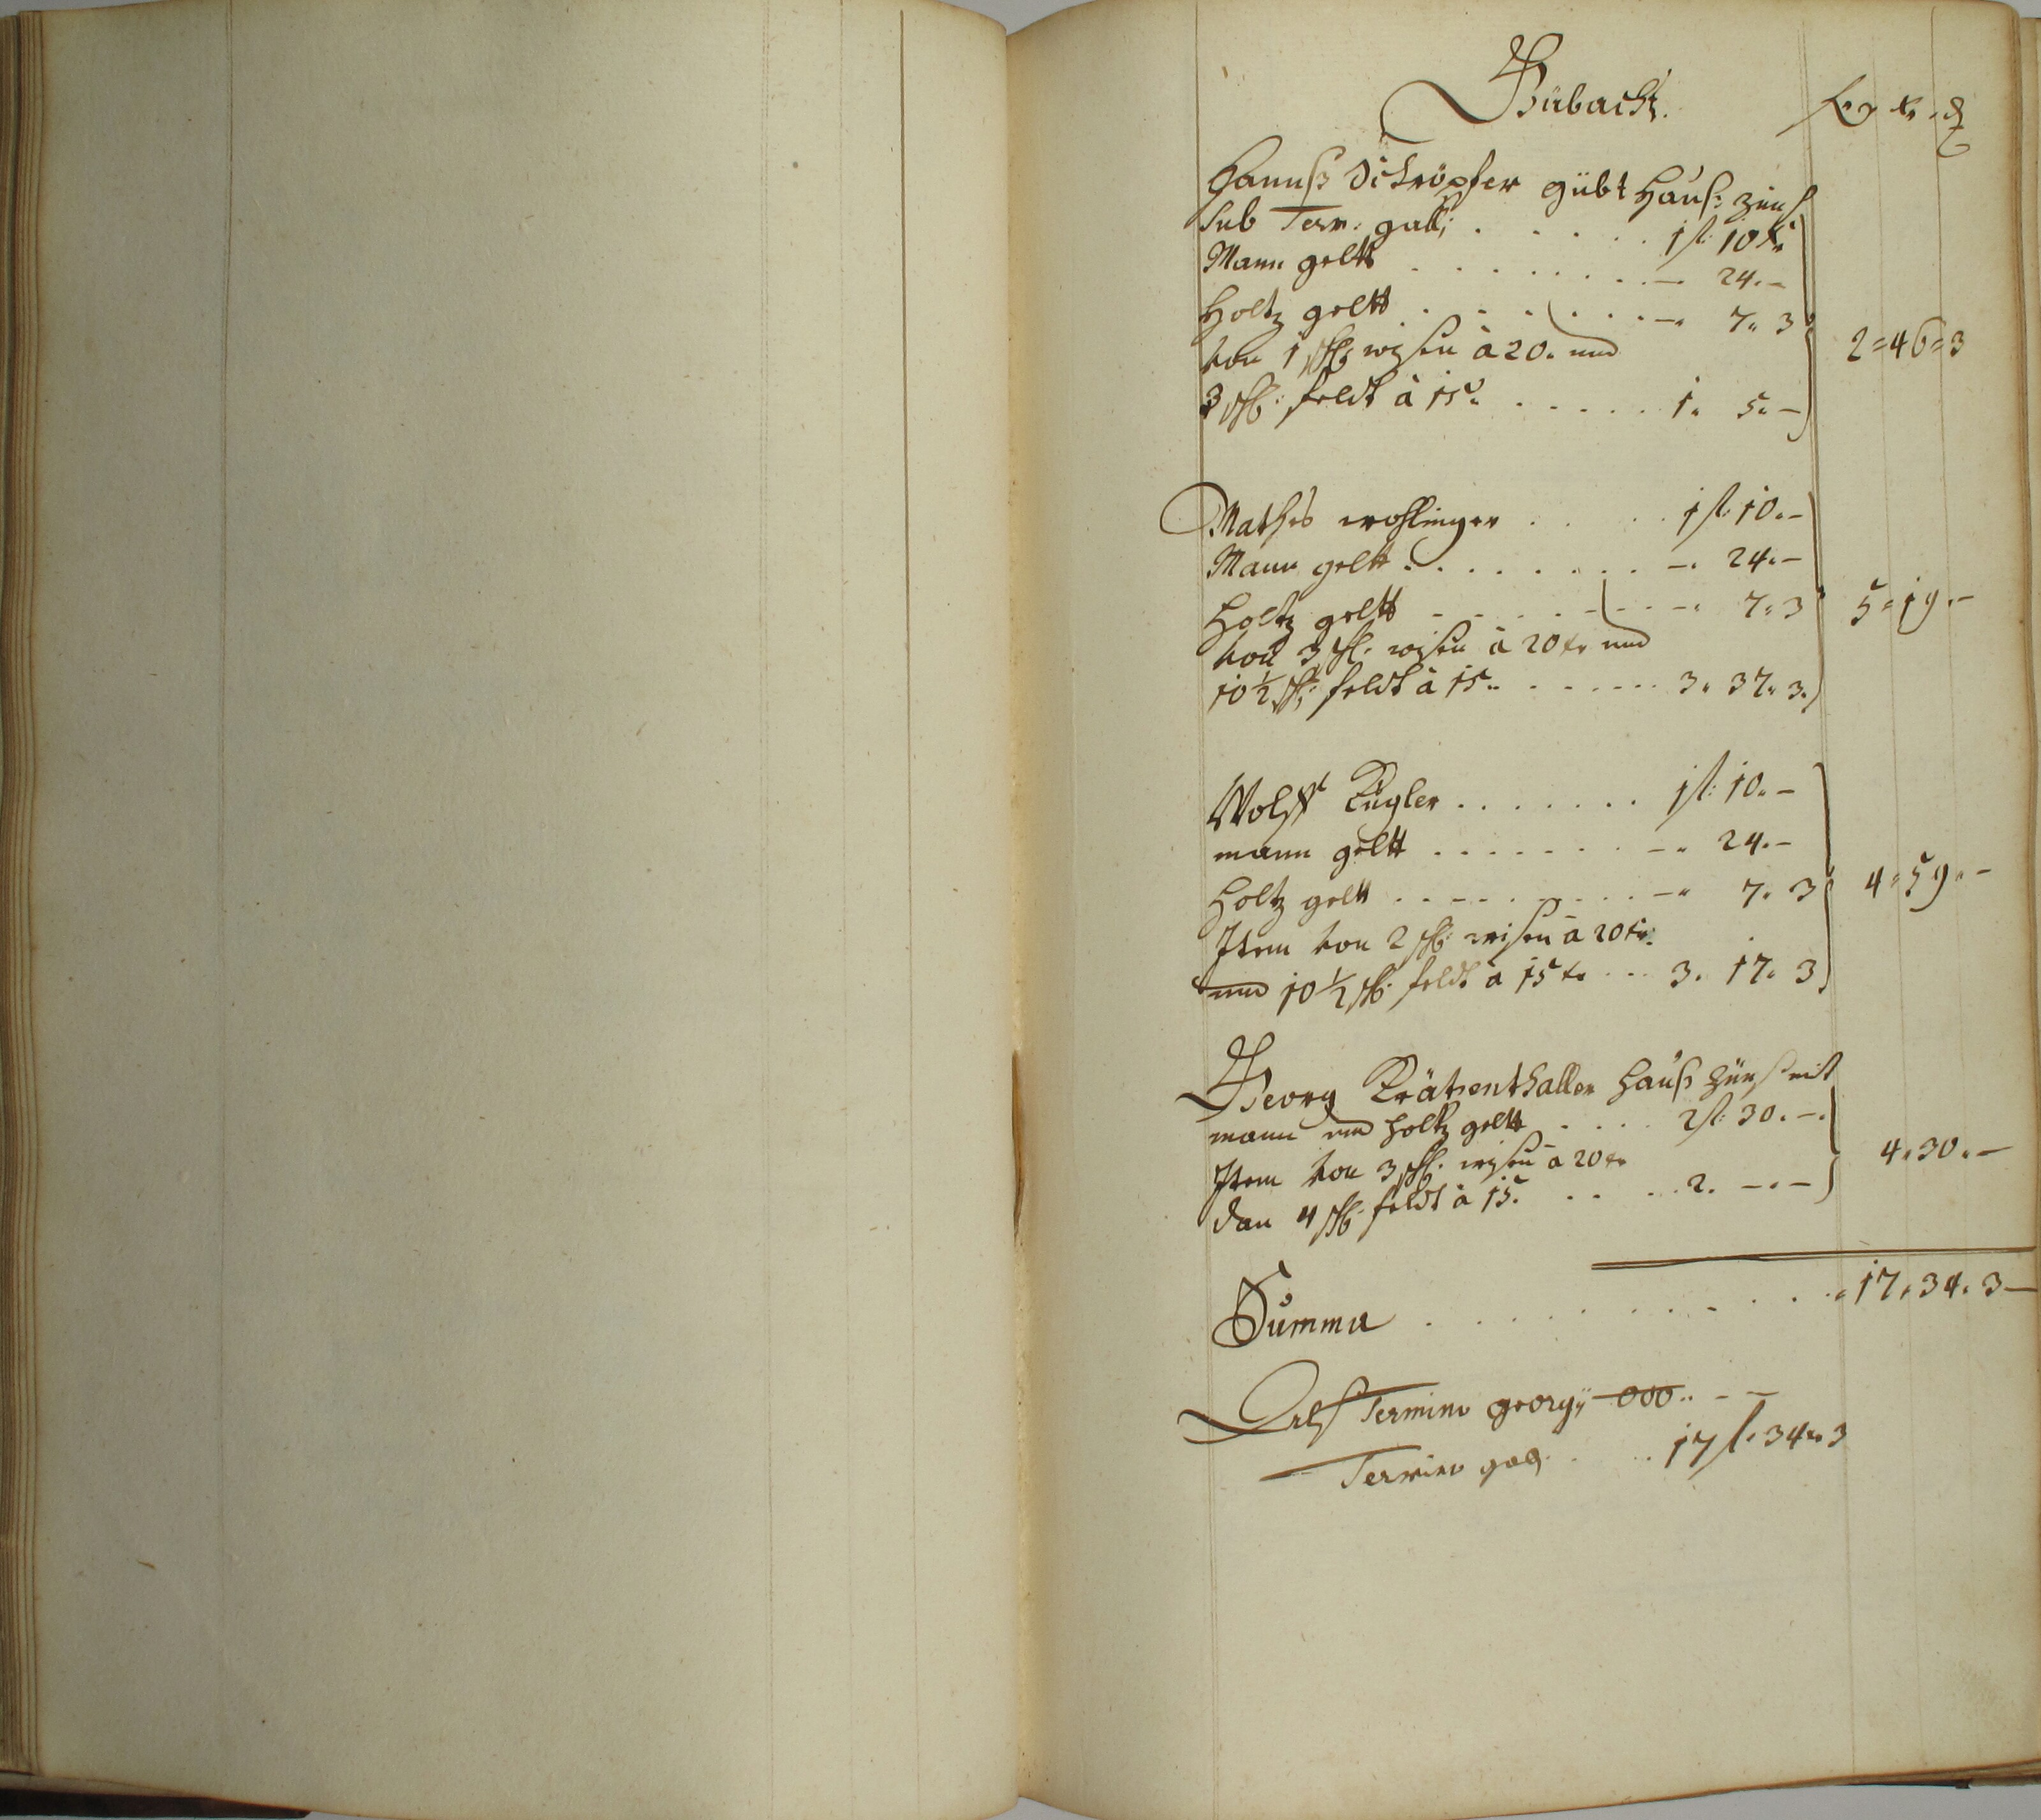 Bübachz.
fl xr ₰
Hannß Schröpfer gübt Hauß zinß
Sub Term: galli . . . . . 1 fl: 10 xr
Mann geltt . . . . . . . — 24. —
Holtz geltt . . . . . . . — 7. 3
2=46=3
von 1 sch: wisen à 20. und
3 sch: feldt à 15. . . . . . 1. 5. —
Mathes . . . . 1 fl: 10. —
Mann geltt . . . . . . . . —. 24. —
Holtz geltt - - - - - - - —. 7. 3
5=19. —
von 3 sch: wisen à 20 xr und
10½ sch: feldt à 15. . . . . . . 3. 37. 3.
Wolff Kugler . . . . . . . 1 fl: 10. —
mann geltt . . . . . . . —. 24. —
Holtz geltt . . . . . . . . —. 7. 3
4=59. —
Item von 2 sch: wisen à 20 xr:
und 10½ sch: feldt à 15 xr . . . 3. 17. 3
Georg Krätzenthaller Hauß zünß mit
mann und holtz geltt . . . . 2 fl: 30. —.
Item von 3 sch: wisen à 20 xr
4. 30. —
dan 4 sch: feldt à 15. . . . . 2. —. —
Summa . . . . . . . . . 17. 34. 3 —
Alß Termino georgy — 000. — —
Termino gall. . . . 17 fl. 34. 3